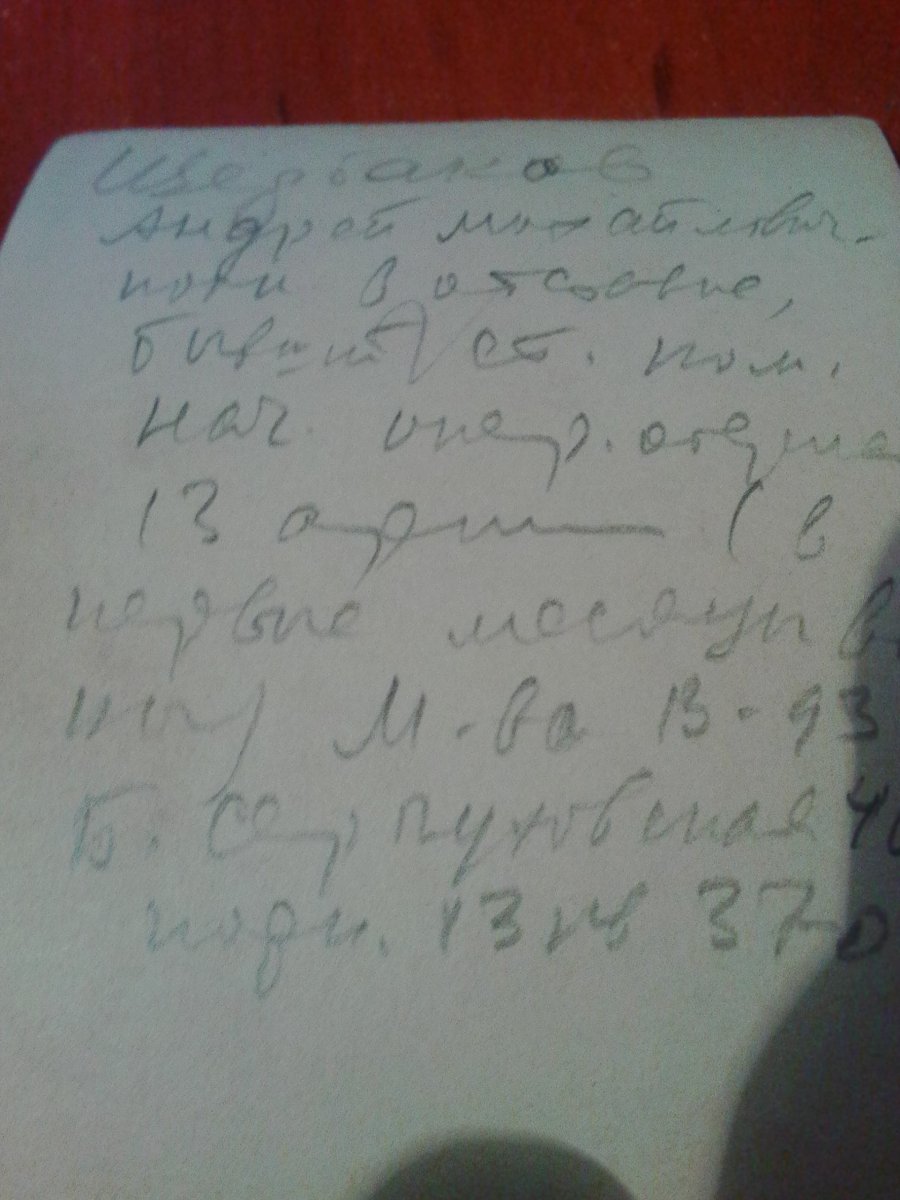 Щербаков
Андрей Михайлович -
полк в отставке,
бывший ст. пом.
нач. опер. отдела
13 армии (в
первые месяцы
М-ва В-93
Б. Серпуховская
подъ. 13 кв 37